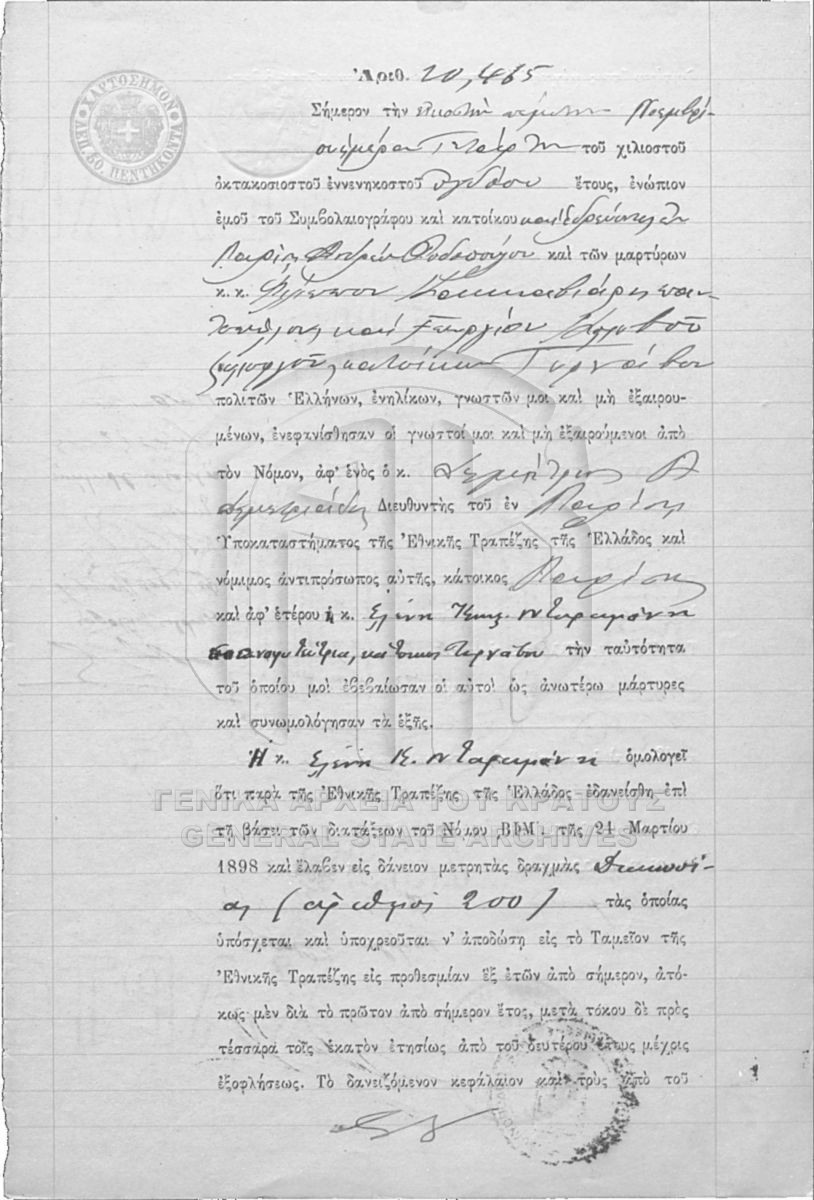 ΧΑΡΤΟΣΗΜΟΝ
ΛΕΠ. 50. ΠΕΝΤΗΚΟΝΤΑ
Ἀριθ. 20,465
Σήμερον τὴν εἰκοστὴν πέμπτην Νοεμβρί-
ου ἡμέραν Τετάρτην τοῦ χιλιοστοῦ
ὀκτακοσιοστοῦ ἐννενηκοστοῦ ὀγδόου ἔτους, ἐνώπιον
ἐμοῦ τοῦ Συμβολαιογράφου καὶ κατοίκου καὶ ἑδρεύοντος ἐν
Λαρίσῃ Ἀνδρέου Ροδοπούλου καὶ τῶν μαρτύρων
κ. κ. Φίλιππου
καὶ Γεωργίου
κατοίκων Τυρνάβου
πολιτῶν Ἑλλήνων, ἐνηλίκων, γνωστῶν μοι καὶ μὴ ἐξαιρου-
μένων, ἐνεφανίσθησαν οἱ γνωστοί μοι καὶ μὴ ἐξαιρούμενοι ἀπὸ
τὸν Νόμον, ἀφ' ἑνὸς ὁ κ. Δημήτριος Α
Δημητριάδης Διευθυντὴς τοῦ ἐν Λαρίσῃ
Ὑποκαταστήματος τῆς Ἐθνικῆς Τραπέζης τῆς Ἑλλάδος καὶ
νόμιμος ἀντιπρόσωπος αὐτῆς, κάτοικος Λαρίσης
καὶ ἀφ' ἑτέρου ἡ κ. Ελένη Κων. Νταραμάνη
κάτοικος Τυρνάβου τὴν ταὐτότητα
τοῦ ὁποίου μοὶ ἐβεβαίωσαν οἱ αὐτοὶ ὡς ἀνωτέρω μάρτυρες
καὶ συνωμολόγησαν τὰ ἑξῆς.
Ἡ κ. Ελένη Κ. Νταραμάνη ὁμολογεῖ
ὅτι παρὰ τῆς Ἐθνικῆς Τραπέζης τῆς Ἑλλάδος ἐδανείσθη ἐπὶ
τῇ βάσει τῶν διατάξεων τοῦ Νόμου ͵ΒΦΜ΄. τῆς 21 Μαρτίου
1898 καὶ ἔλαβεν εἰς δάνειον μετρητὰς δραχμὰς Διακοσί-
ας (ἀριθμὸς 200) τὰς ὁποίας
ὑπόσχεται καὶ ὑποχρεοῦται ν' ἀποδώσῃ εἰς τὸ Ταμεῖον τῆς
Ἐθνικῆς Τραπέζης εἰς προθεσμίαν ἓξ ἐτῶν ἀπὸ σήμερον, ἀτό-
κως μὲν διὰ τὸ πρῶτον ἀπὸ σήμερον ἔτος, μετὰ τόκου δὲ πρὸς
τέσσαρα τοῖς ἑκατὸν ἐτησίως ἀπὸ τοῦ δευτέρου ἔτους μέχρις
ἐξοφλήσεως. Τὸ δανειζόμενον κεφάλαιον καὶ τοὺς ἀπὸ τοῦ
ΓΕΝΙΚΑ ΑΡΧΕΙΑ ΤΟΥ ΚΡΑΤΟΥΣ
GENERAL STATE ARCHIVES